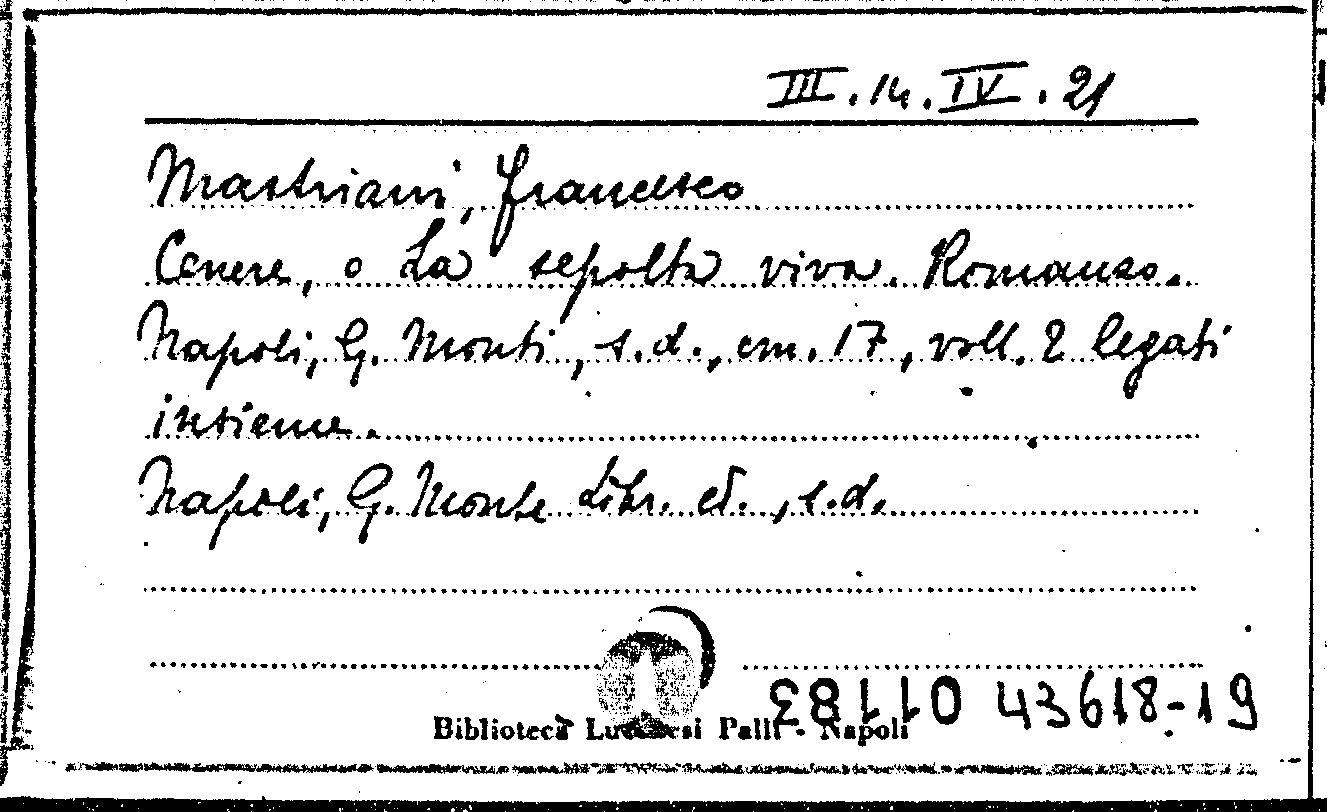 III.14.IV.21
Mastriani, Francesco
Cenere, o La sepolta viva. Romanzo.
Napoli, G. Monti, s.d., cm. 17, voll. 2 legati
insieme.
Napoli, G. Monte Libr. ed., s.d.
011183 43618-19
Biblioteca Lucchesi Palli - Napoli